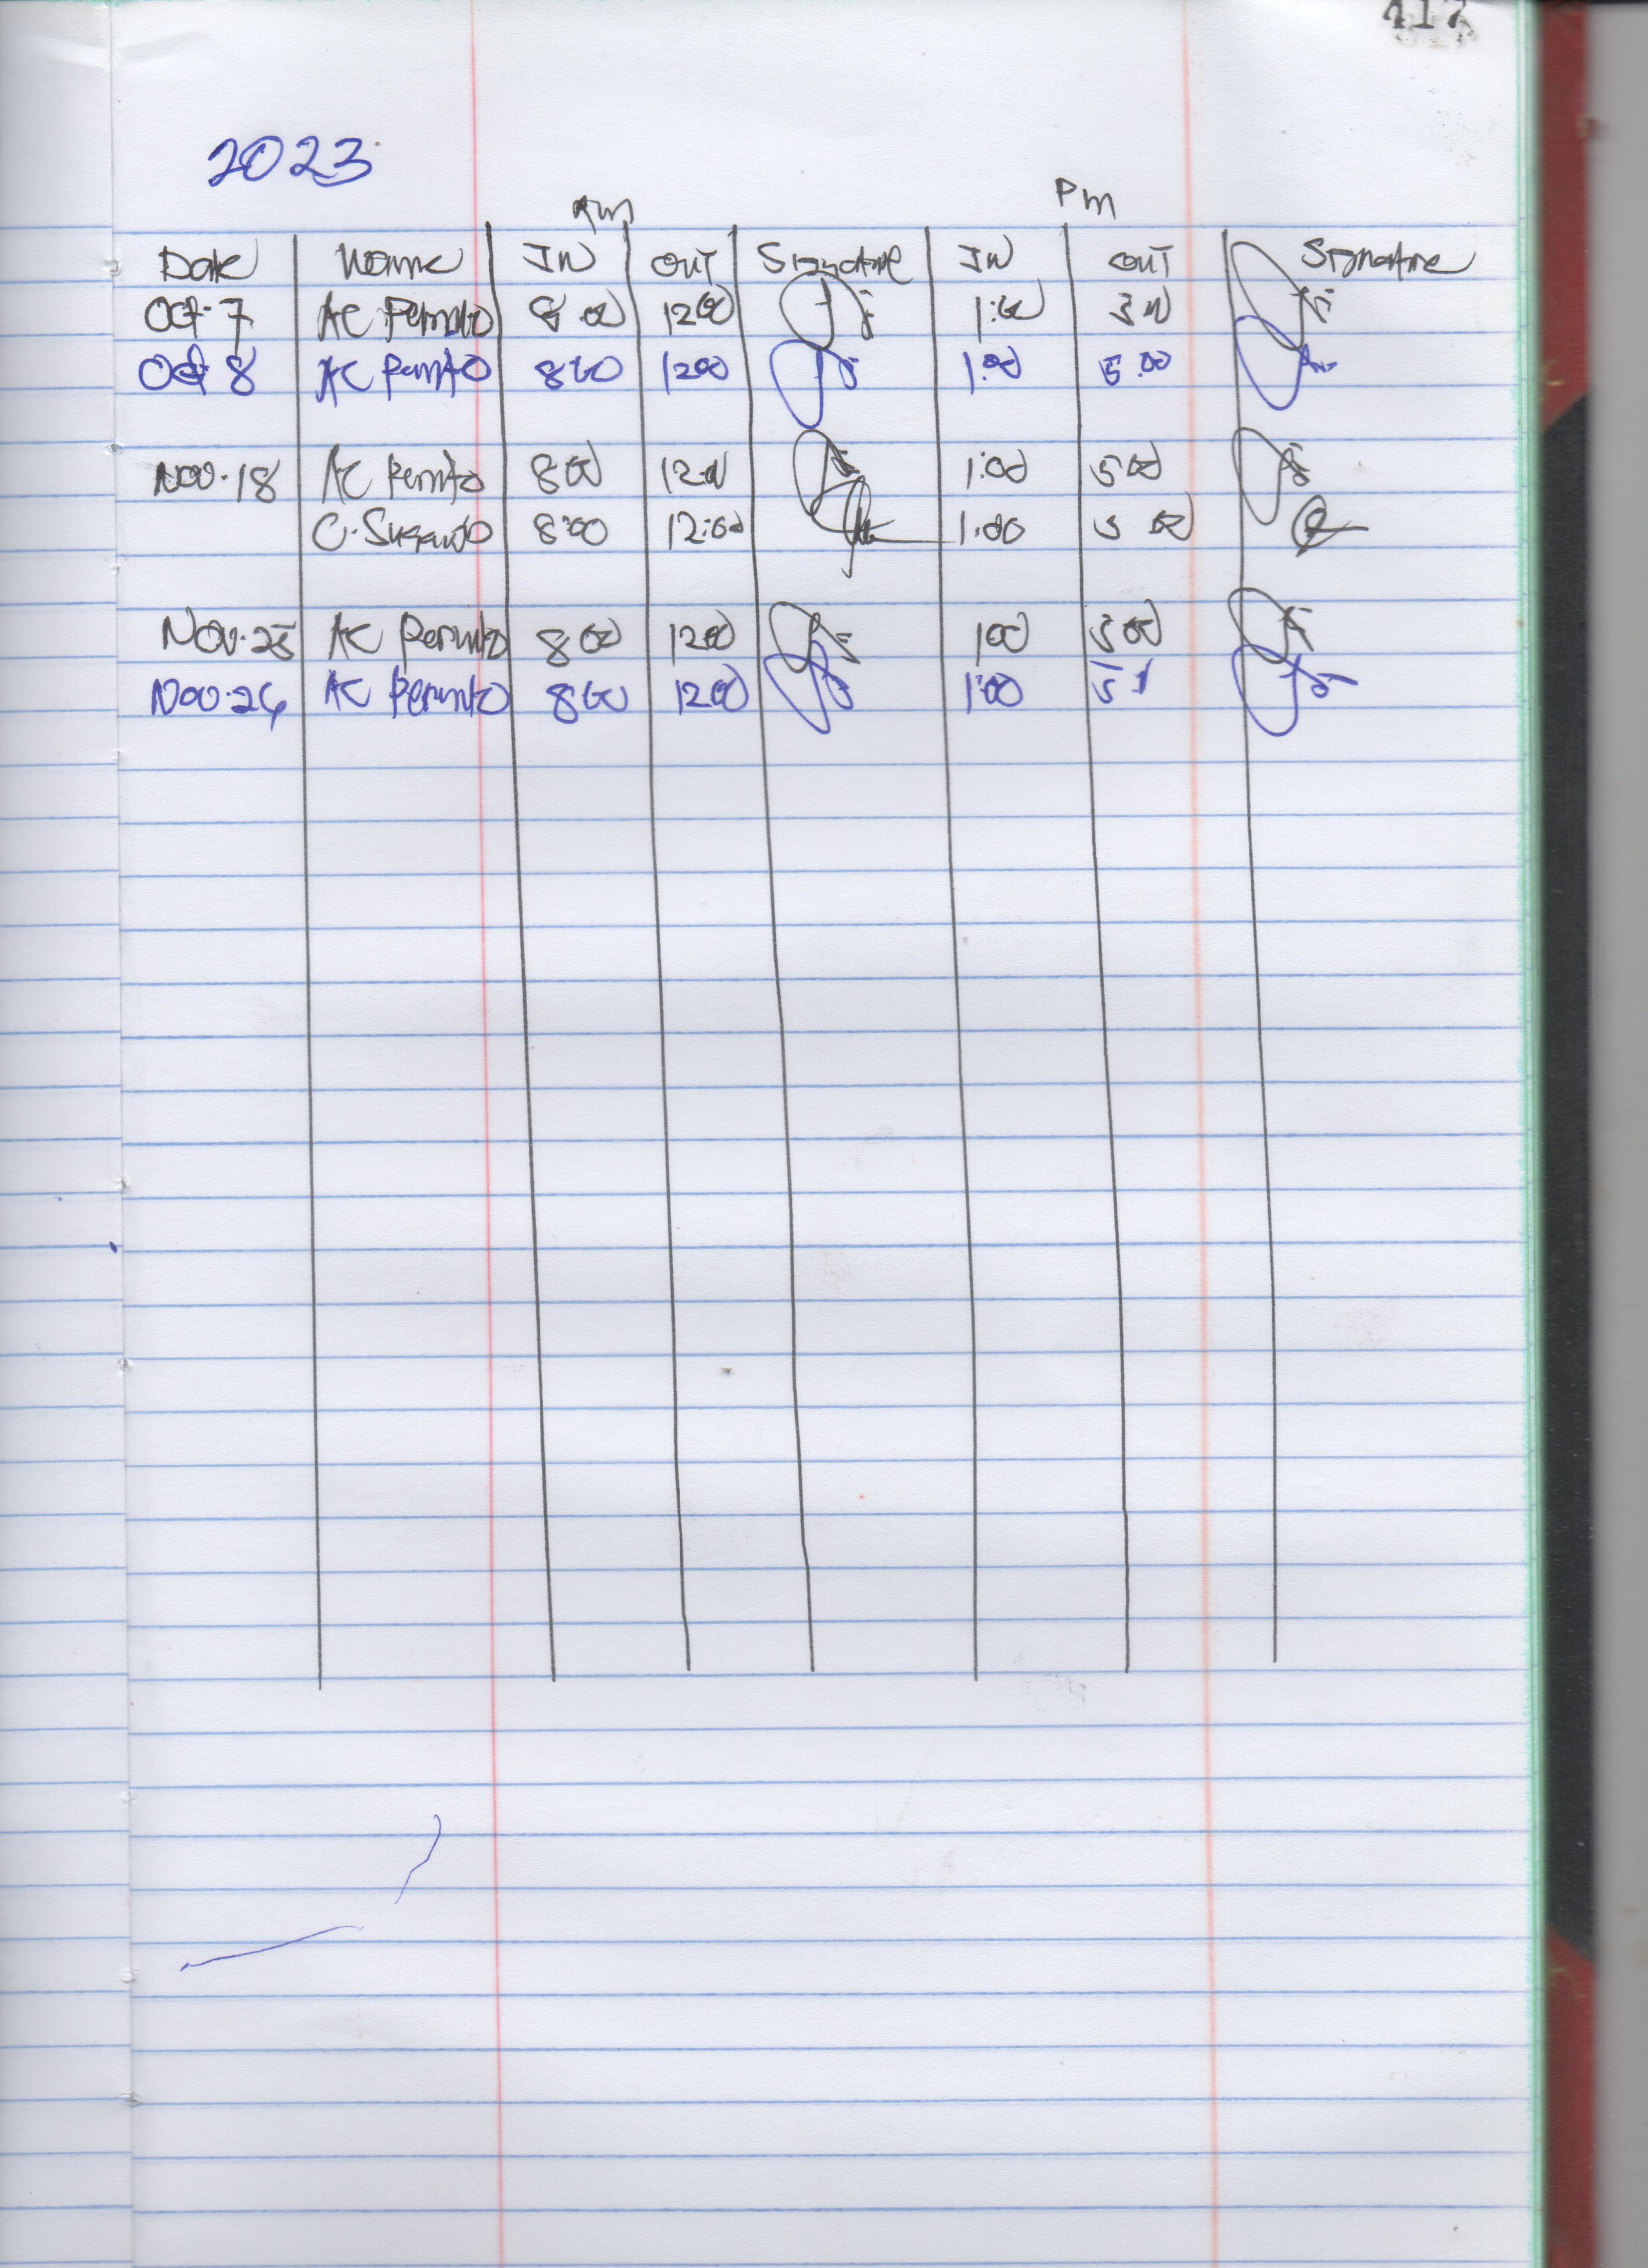 417
2023
Am Pm
Date Name IN OUT Signature IN OUT Signature
Oct. 7 AC Permito 8:00 1200 1:00 5 00
Oct 8 AC Permito 800 1200 1:00 5:00
Nov. 18 AC Permito 800 12:00 1:00 5 00
C. 8:00 12:00 1:00 5 00
Nov. 25 AC Permito 8 00 1200 100 5 00
Nov. 26 AC Permito 800 1200 1:00